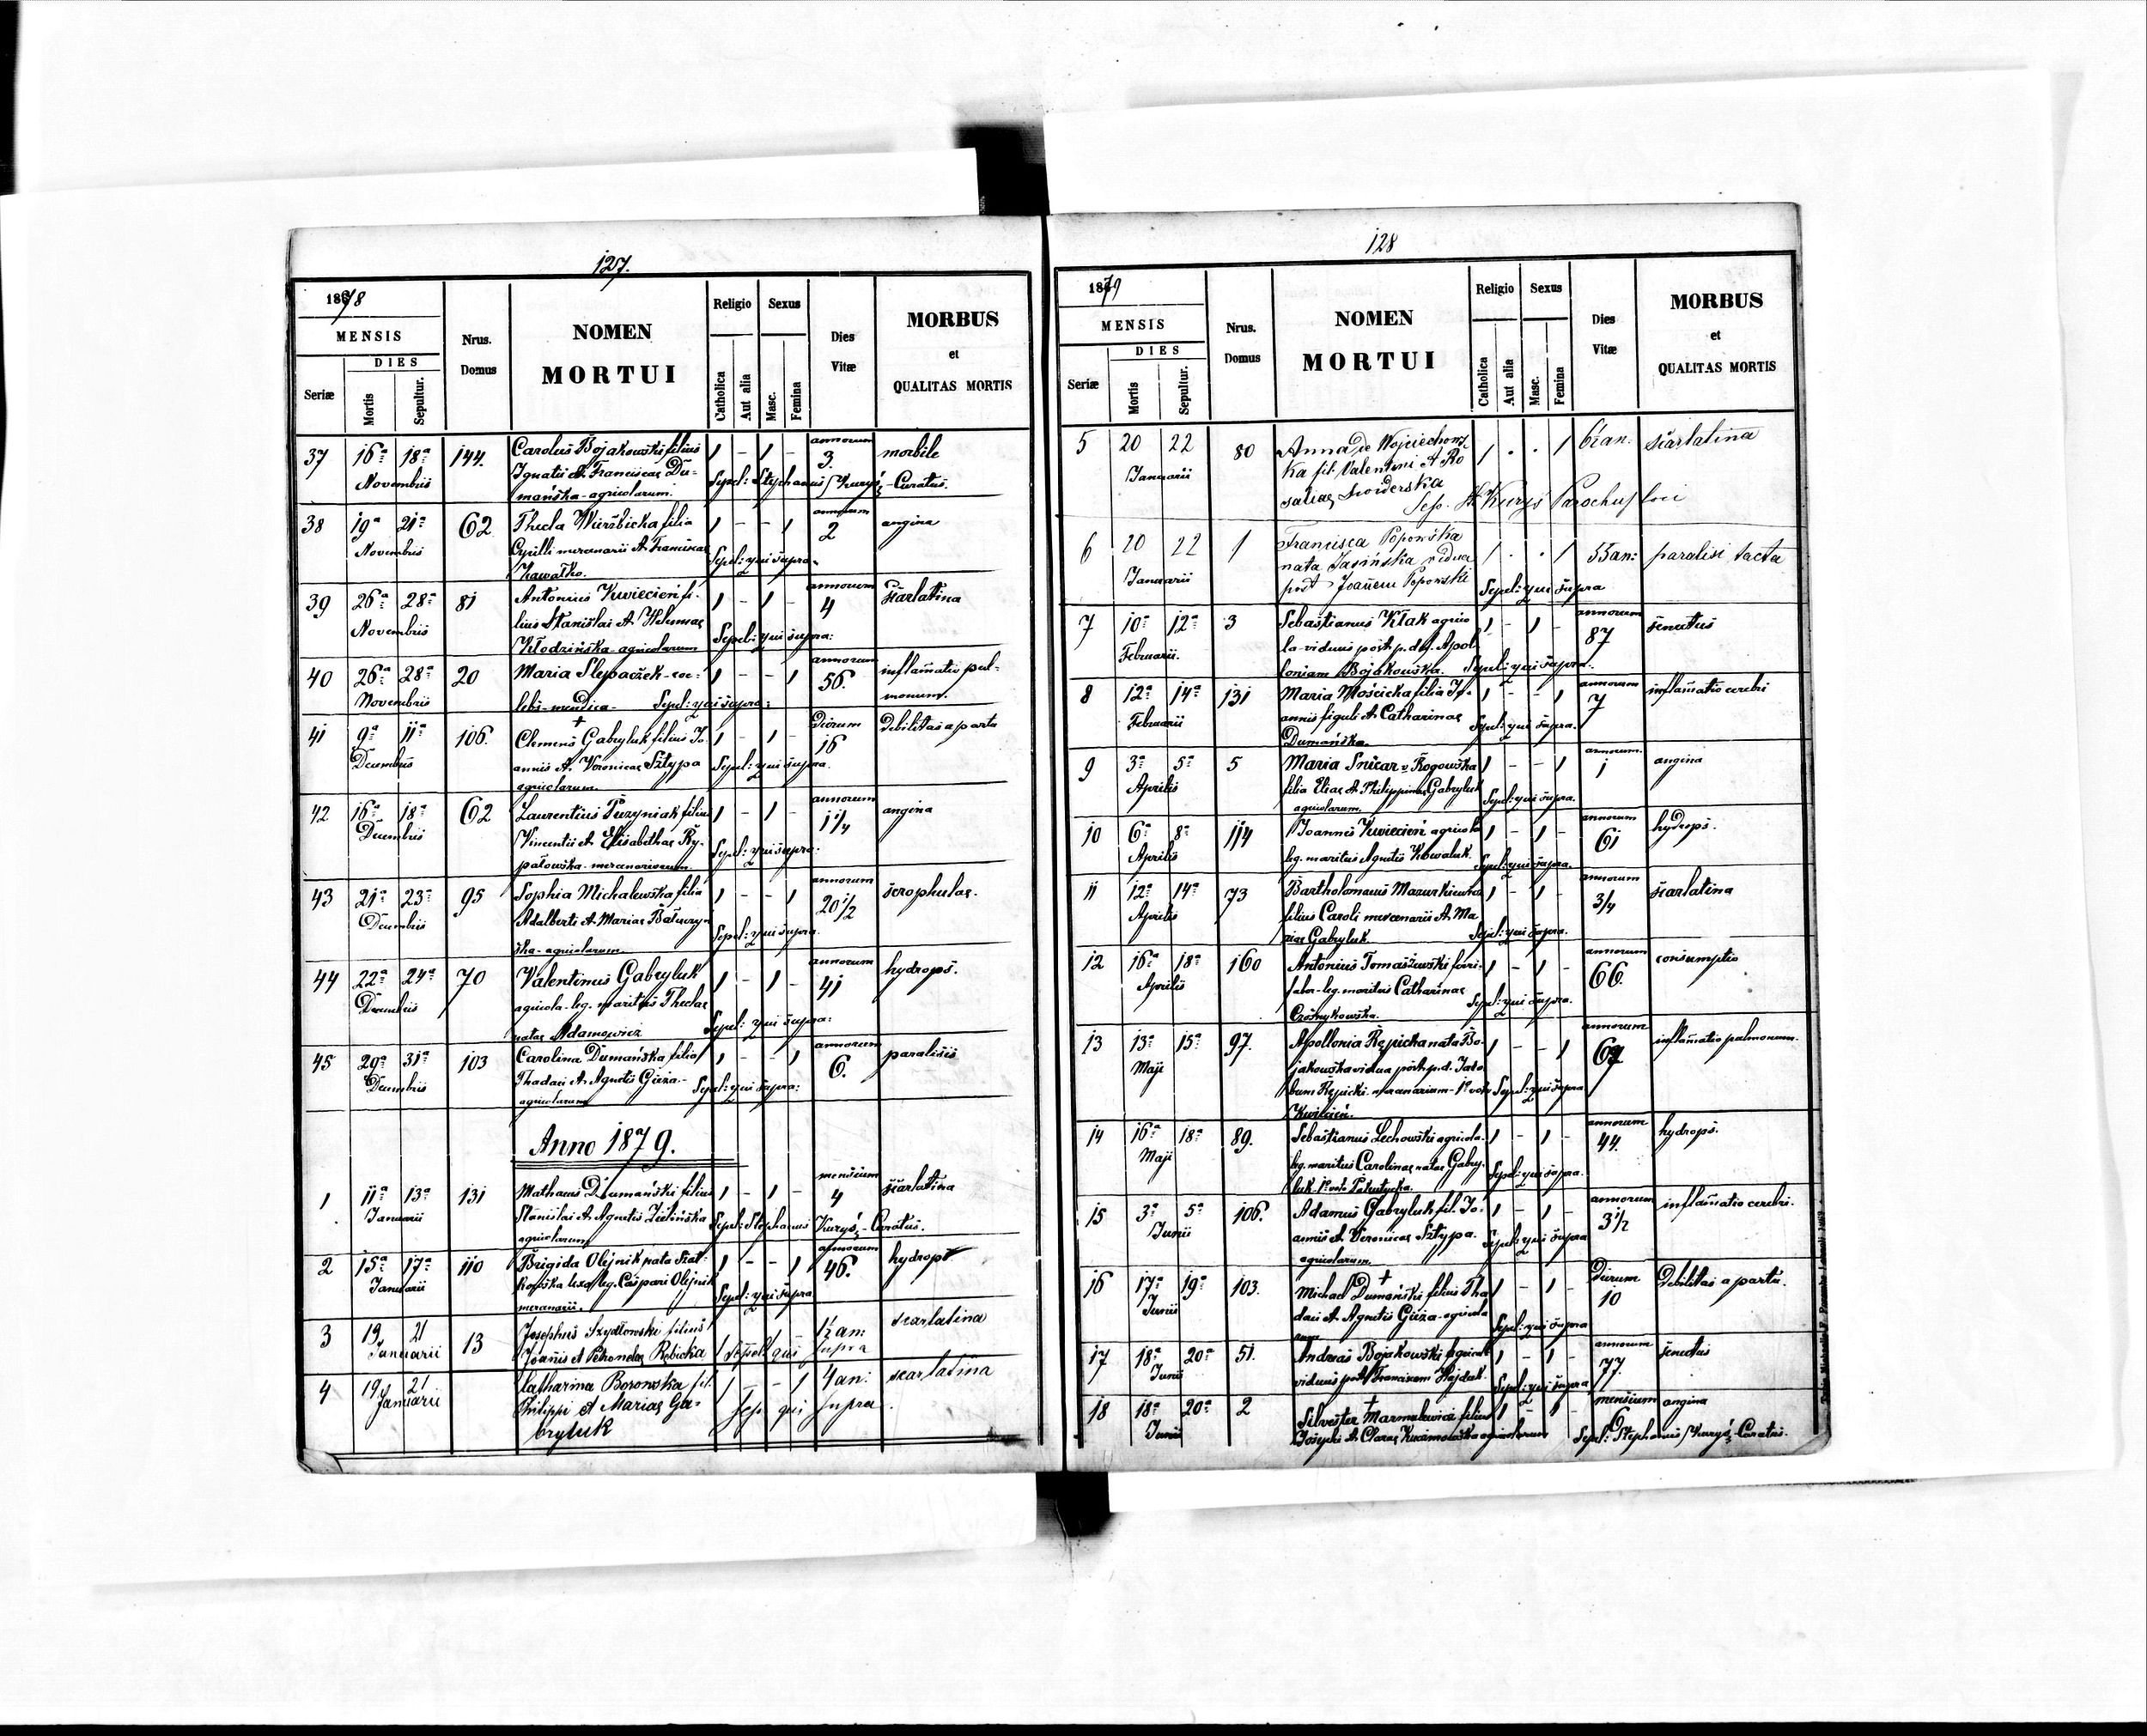 127.
1878
MENSIS
DIES
Seriæ
Mortis
Sepultur.
Nrus. Domus
NOMEN
MORTUI
Religio
Catholica
Aut alia
Sexus
Masc.
Femina
Dies
Vitæ
MORBUS
et
QUALITAS MORTIS
37 16a 18a 144. Carolus Bojakowski filius 1 - 1 - annorum 3. morbile
Novembris Ignatii et Franciscae Du-
mańska - agricolarum. Sepel: Stephanus Kuryś - Curatus.
38 19a 21a 62 Thecla Wierzbicka filia 1 - - 1 annorum 2 angina
Novembris Cyrilli mercenarii et Franciscae
Kawałko. Sepel: qui supra
39 26a 28a 81 Antonius Kwiecień fi- 1 - 1 - annorum 4 scarlatina
Novembris lius Stanislai et Helenae
Kłodzińska agricolarum Sepel: qui supra:
40 26a 28a 20 Maria Slepaczek - coe- 1 - - 1 annorum 56. inflam̃atio pul-
Novembris lebs - mendica - Sepel: qui supra: monum.
41 9a 11a 106. Clemens Gabryluk filius Jo- 1 - 1 - Dierum 16 Debilitas a partu
Decembris annis et Veronicae Sztypa Sepel: qui supra.
agricolarum
42 16a 18a 62 Laurentius Puzyniak filius 1 - 1 - annorum 1 1/4 angina
Decembris Vincentii et Elisabethae Ry-
pałowska mercenariorum Sepel: qui supra.
43 21a 23a 95 Sophia Michalewska filia 1 - - 1 annorum 20 1/2 scrophulae.
Decembris Adalberti et Mariae
ska - agricolarum Sepel: qui supra.
44 22a 24a 70 Valentinus Gabryluk 1 - 1 - annorum 41 hydrops.
Decembris agricola - leg. maritus Theclae
natae Adamowicz Sepel: qui supra:
45 29a 31a 103 Carolina Dumańska filia 1 - - 1 annorum 6. paralisis
Decembris Thadaei et Agnetis Guza -
agricolarum Sepel: qui supra:
Anno 1879.
1 11a 13a 131 Mathaeus Dumański filius 1 - 1 - mensium 4 scarlatina
Januarii Stanislai et Agnetis Zielińska
agricolarum Sepel: Stephanus Kuryś - Curatus.
2 15a 17a 110 Brigida Olejnik nata Szat- 1 - - 1 annorum 46. hydrops
Januarii kowska uxor leg. Caspari Olejnik
mercenarii. Sepel: qui supra
3 19 21 13 Josephus Szydłowski filius 1½ an: scarlatina
Januarii Joannis et Petronelae Rębicka Sepel qui supra
4 19 21 Catharina Borowska fil. 1 - - 1 4 an: scarlatina
Januarii Philippi et Mariae Ga-
bryluk Sep. qui supra
128
1879
MENSIS
DIES
Seriæ
Mortis
Sepultur.
Nrus. Domus
NOMEN
MORTUI
Religio
Catholica
Aut alia
Sexus
Masc.
Femina
Dies
Vitæ
MORBUS
et
QUALITAS MORTIS
5 20 22 80 Anna de Wojciechows- 1 . . 1 an: scarlatina
Januarii ka fil. Valentini et Ro-
saliae
Sep. Kuryś Parochus loci
6 20 22 1 Francisca Popowska 1 . . 1 55 an: paralisi tacta
Januarii nata Jasińska vidua
post Joan̄em Popowski Sepel: qui supra
7 10a 12a 3 Sebastianus Kłak agrico- 1 - 1 - annorum 87 senectus
Februarii. la - viduus post p. d. Apol-
loniam Bojakowska. Sepel: qui supra.
8 12a 14a 131 Maria Mościcka filia Jo- 1 - - 1 annorum 7 inflam̃atio cerebri
Februarii annis figuli et Catharinae
Dumańska. Sepel: qui supra.
9 3a 5a 5 Maria Snicar v. Rogowska 1 - - 1 annorum. 1 angina
Aprilis filia Eliae et Philippinae Gabryluk
agricolarum. Sepel: qui supra.
10 6a 8a 114 Joannes Kwiecień agricola 1 - 1 - annorum 61 hydrops.
Aprilis leg. maritus Agnetis Kowaluk. Sepel: qui supra.
11 12a 14a 73 Bartholomaeus Mazurkiewicz 1 - 1 - annorum 3/4 scarlatina
Aprilis filius Caroli mercenarii et Ma-
riae Gabryluk. Sepel: qui supra.
12 16a 18a 160 Antonius Tomaszewski ferri- 1 - 1 - annorum 66. consumptio
Aprilis faber - leg. maritus Catharinae
Sepel: qui supra.
13 13a 15a 97. Apollonia Rępicka nata Bo- 1 - - 1 annorum inflam̃atio pulmonum.
Maji jakowska vidua post p. d. Jaco-
bum Rępicki - mercenarium - 1o voto Sepel: qui supra
Kwiecień.
14 16a 18a 89. Sebastianus Lechowski agricola. 1 - 1 - annorum 44. hydrops.
Maji leg. maritus Carolinae natae Gabry-
luk 1o voto Sepel: qui supra.
15 3a 5a 106. Adamus Gabryluk fil. Jo- 1 - 1 - annorum 3 1/2 inflam̃atio cerebri.
Junii annis et Veronicae Sztypa. Sepel: qui supra
agricolarum.
16 17a 19a 103. Michael Dumański filius Tha- 1 - 1 - Dierum 10 Debilitas a partu.
Junii daei et Agnetis Guza - agricola-
rum Sepel: qui supra
17 18a 20a 51. Andreas Bojakowski agricola 1 - 1 - annorum 77. senectus
Junii viduus post Franciscam Hajduk. Sepel: qui supra
18 18a 20a 2 Silvester Marmulewicz filius 1 - 1 - mensium 6 angina
Junii Josephi et Clarae agricolarum Sepel: Stephanus Kuryś - Curatus.